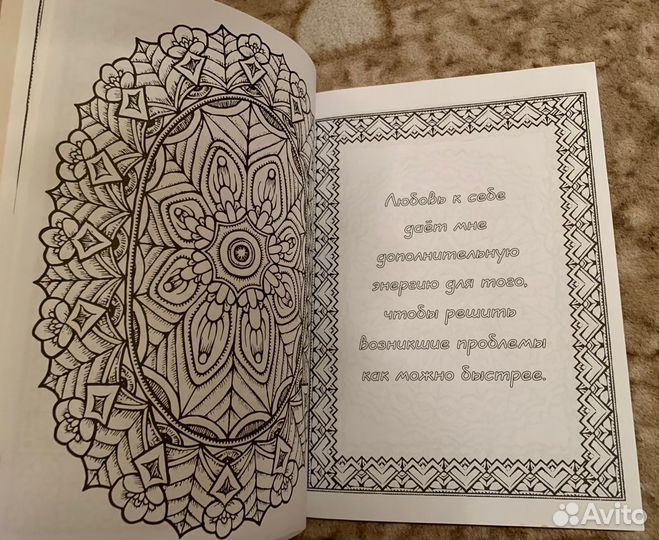 Любовь к себе
даёт мне
дополнительную
энергию для того,
чтобы решить
возникшие проблемы
как можно быстрее.
Avito